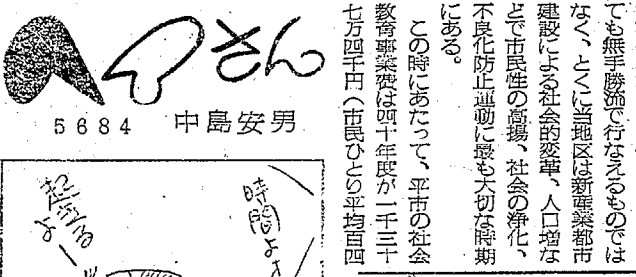 ても無手勝流で行なえるものでは
なく、とくに当地区は新産業都市
建設による社会的変革、人口増な
どで市民性の高揚、社会の浄化、
不良化防止運動に最も大切な時期
にある。
この時にあたって、平市の社会
教育事業費は四十年度が一千三十
七万四千円(市民ひとり平均百四
さん
5684 中島安男
時間よ